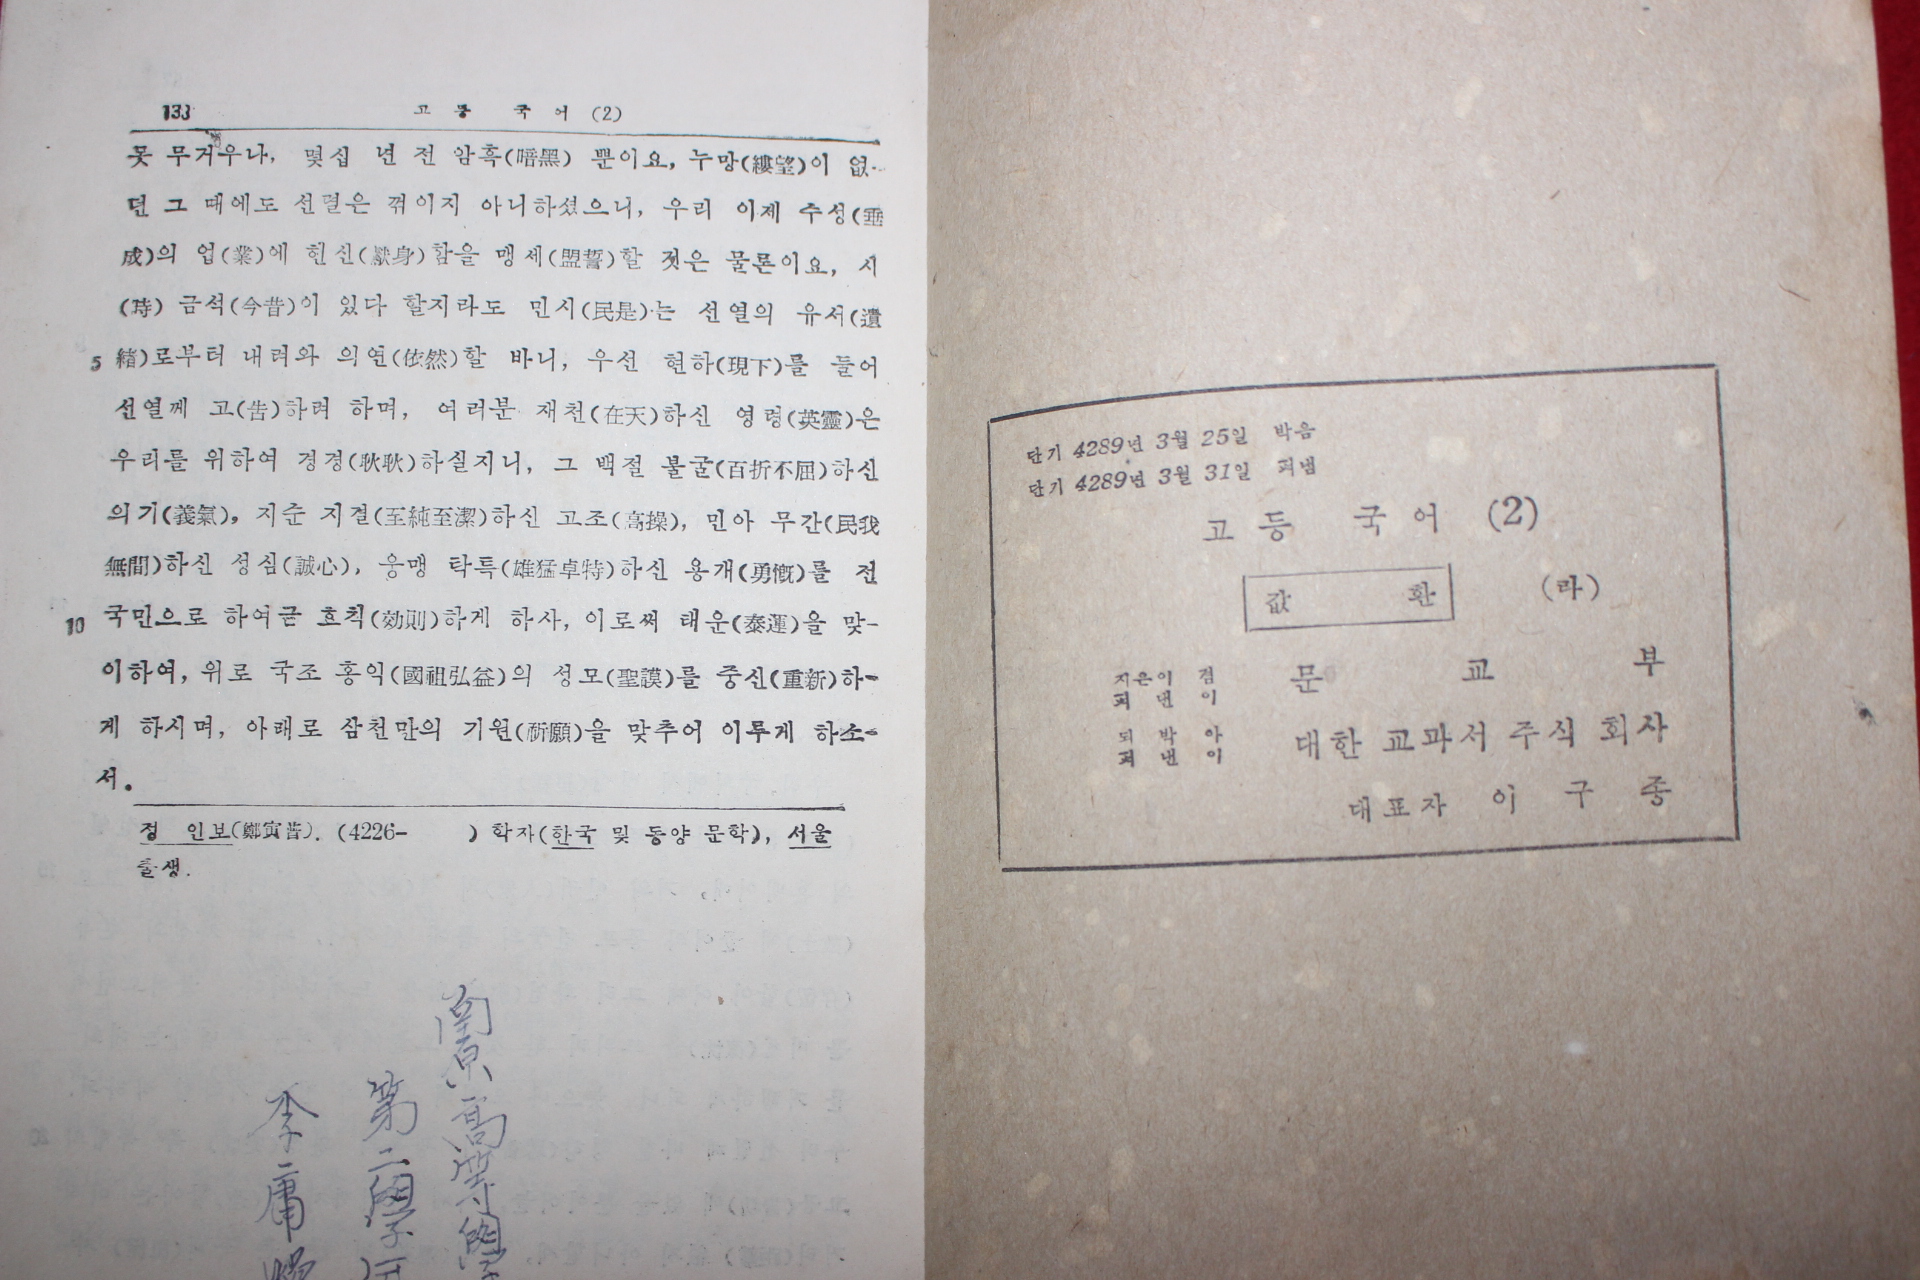 133 고등 국어 (2)
못 무거우나, 몇십 년 전 암흑(暗黑) 뿐이요, 누망(縷望)이 없-
던 그 때에도 선열은 꺾이지 아니하셨으니, 우리 이제 수성(垂
成)의 업(業)에 헌신(獻身)함을 맹세(盟誓)할 것은 물론이요, 시
(時) 금석(今昔)이 있다 할지라도 민시(民是)는 선열의 유서(遺
5 緖)로부터 내려와 의연(依然)할 바니, 우선 현하(現下)를 들어
선열께 고(告)하려 하며, 여러분 재천(在天)하신 영령(英靈)은
우리를 위하여 경경(耿耿)하실지니, 그 백절 불굴(百折不屈)하신
의기(義氣), 지순 지결(至純至潔)하신 고조(高操), 민아 무간(民我
無間)하신 성심(誠心), 웅맹 탁특(雄猛卓特)하신 용개(勇慨)를 전
10 국민으로 하여금 효칙(効則)하게 하사, 이로써 태운(泰運)을 맞-
이하여, 위로 국조 홍익(國祖弘益)의 성모(聖謨)를 중신(重新)하-
게 하시며, 아래로 삼천만의 기원(祈願)을 맞추어 이루게 하소-
서.
정 인보(鄭寅普). (4226- ) 학자(한국 및 동양 문학), 서울
출생.
高等學
第二學年
李庸
단기 4289년 3월 25일 박음
단기 4289년 3월 31일 펴냄
고등 국어 (2)
값 환 (라)
지은이 겸
펴낸이 문교부
되박아
펴낸이 대한 교과서 주식 회사
대표자 이구종